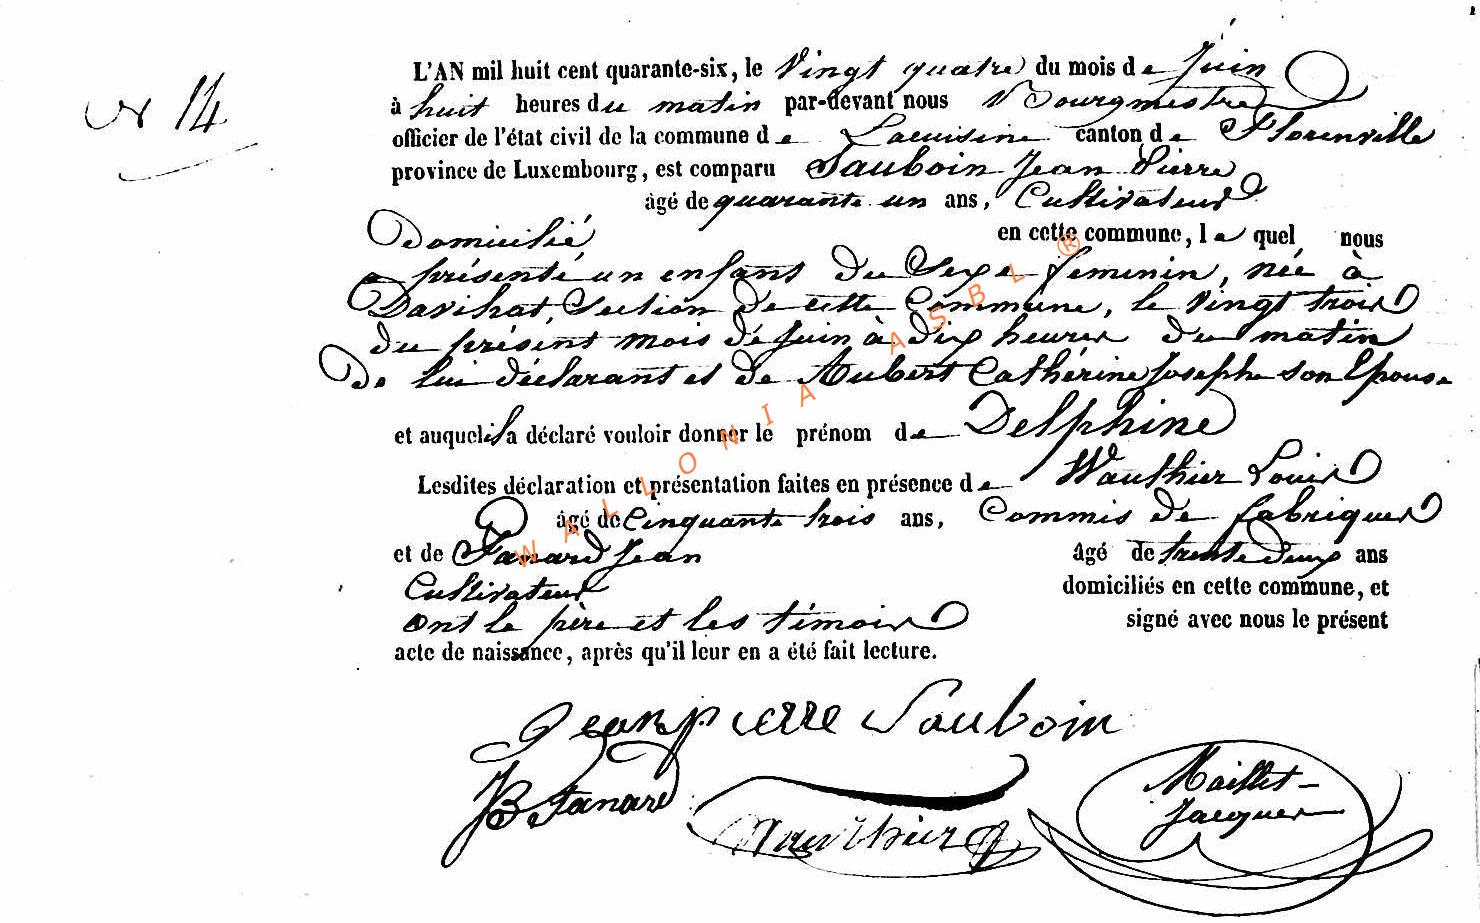 N° 14
L'AN mil huit cent quarante-six, le vingt quatre du mois de Juin
à huit heures du matin par-devant nous Bourgmestre
officier de l'état civil de la commune de Lacuisine canton de Florenville
province de Luxembourg, est comparu Sauboin Jean Pierre
âgé de quarante un ans, Cultivateur
Domicilié en cette commune, lequel nous
a présenté un enfant du Sexe feminin, née à
Davihat, Section de cette Commune, le vingt trois
du présent mois de Juin à dix heures du matin
De lui déclarant et de Aubert Cathérine Josephe son Epouse
et auquel il a déclaré vouloir donner le prénom de Delphine
Lesdites déclaration et présentation faites en présence de Wauthier Louis
âgé de Cinquante trois ans, Commis de fabriques
et de Fanard Jean âgé de trente deux ans
Cultivateur domiciliés en cette commune, et
ont le père et les témoins signé avec nous le présent
acte de naissance, après qu'il leur en a été fait lecture.
Jean pierre Sauboin
JB Fanard Wauthier Maillet-
Jacques
WALLONIA ASBL ®